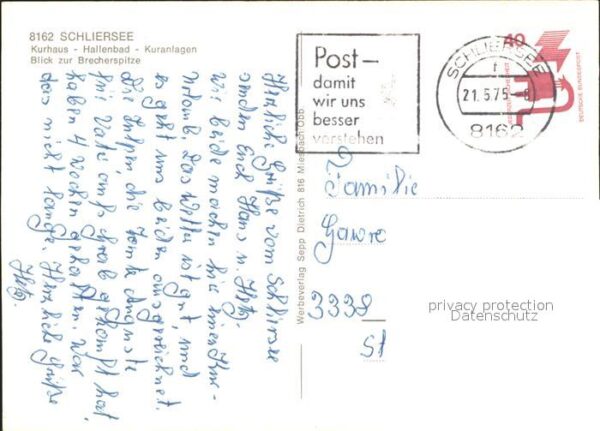 8162 SCHLIERSEE
Kurhaus - Hallenbad - Kuranlagen
Blick zur Brecherspitze
Herzliche Grüße vom Schliersee
senden Euch Hans u.
Wir beide machen hier einen Kur-
urlaub. Das Wetter ist gut, und
es geht uns beiden ausgezeichnet.
Die die Tante Auguste
mit Vati aufs gekämpft hat,
haben 4 Wochen gehalten. War
das nicht lange. Herzliche Grüße
Werbeverlag Sepp Dietrich 816 Miesbach Obb.
Post–
damit
wir uns
besser
verstehen
SCHLIERSEE
21.5.75-8
8162
40
DEUTSCHE BUNDESPOST
Familie
3338
St
privacy protection
Datenschutz